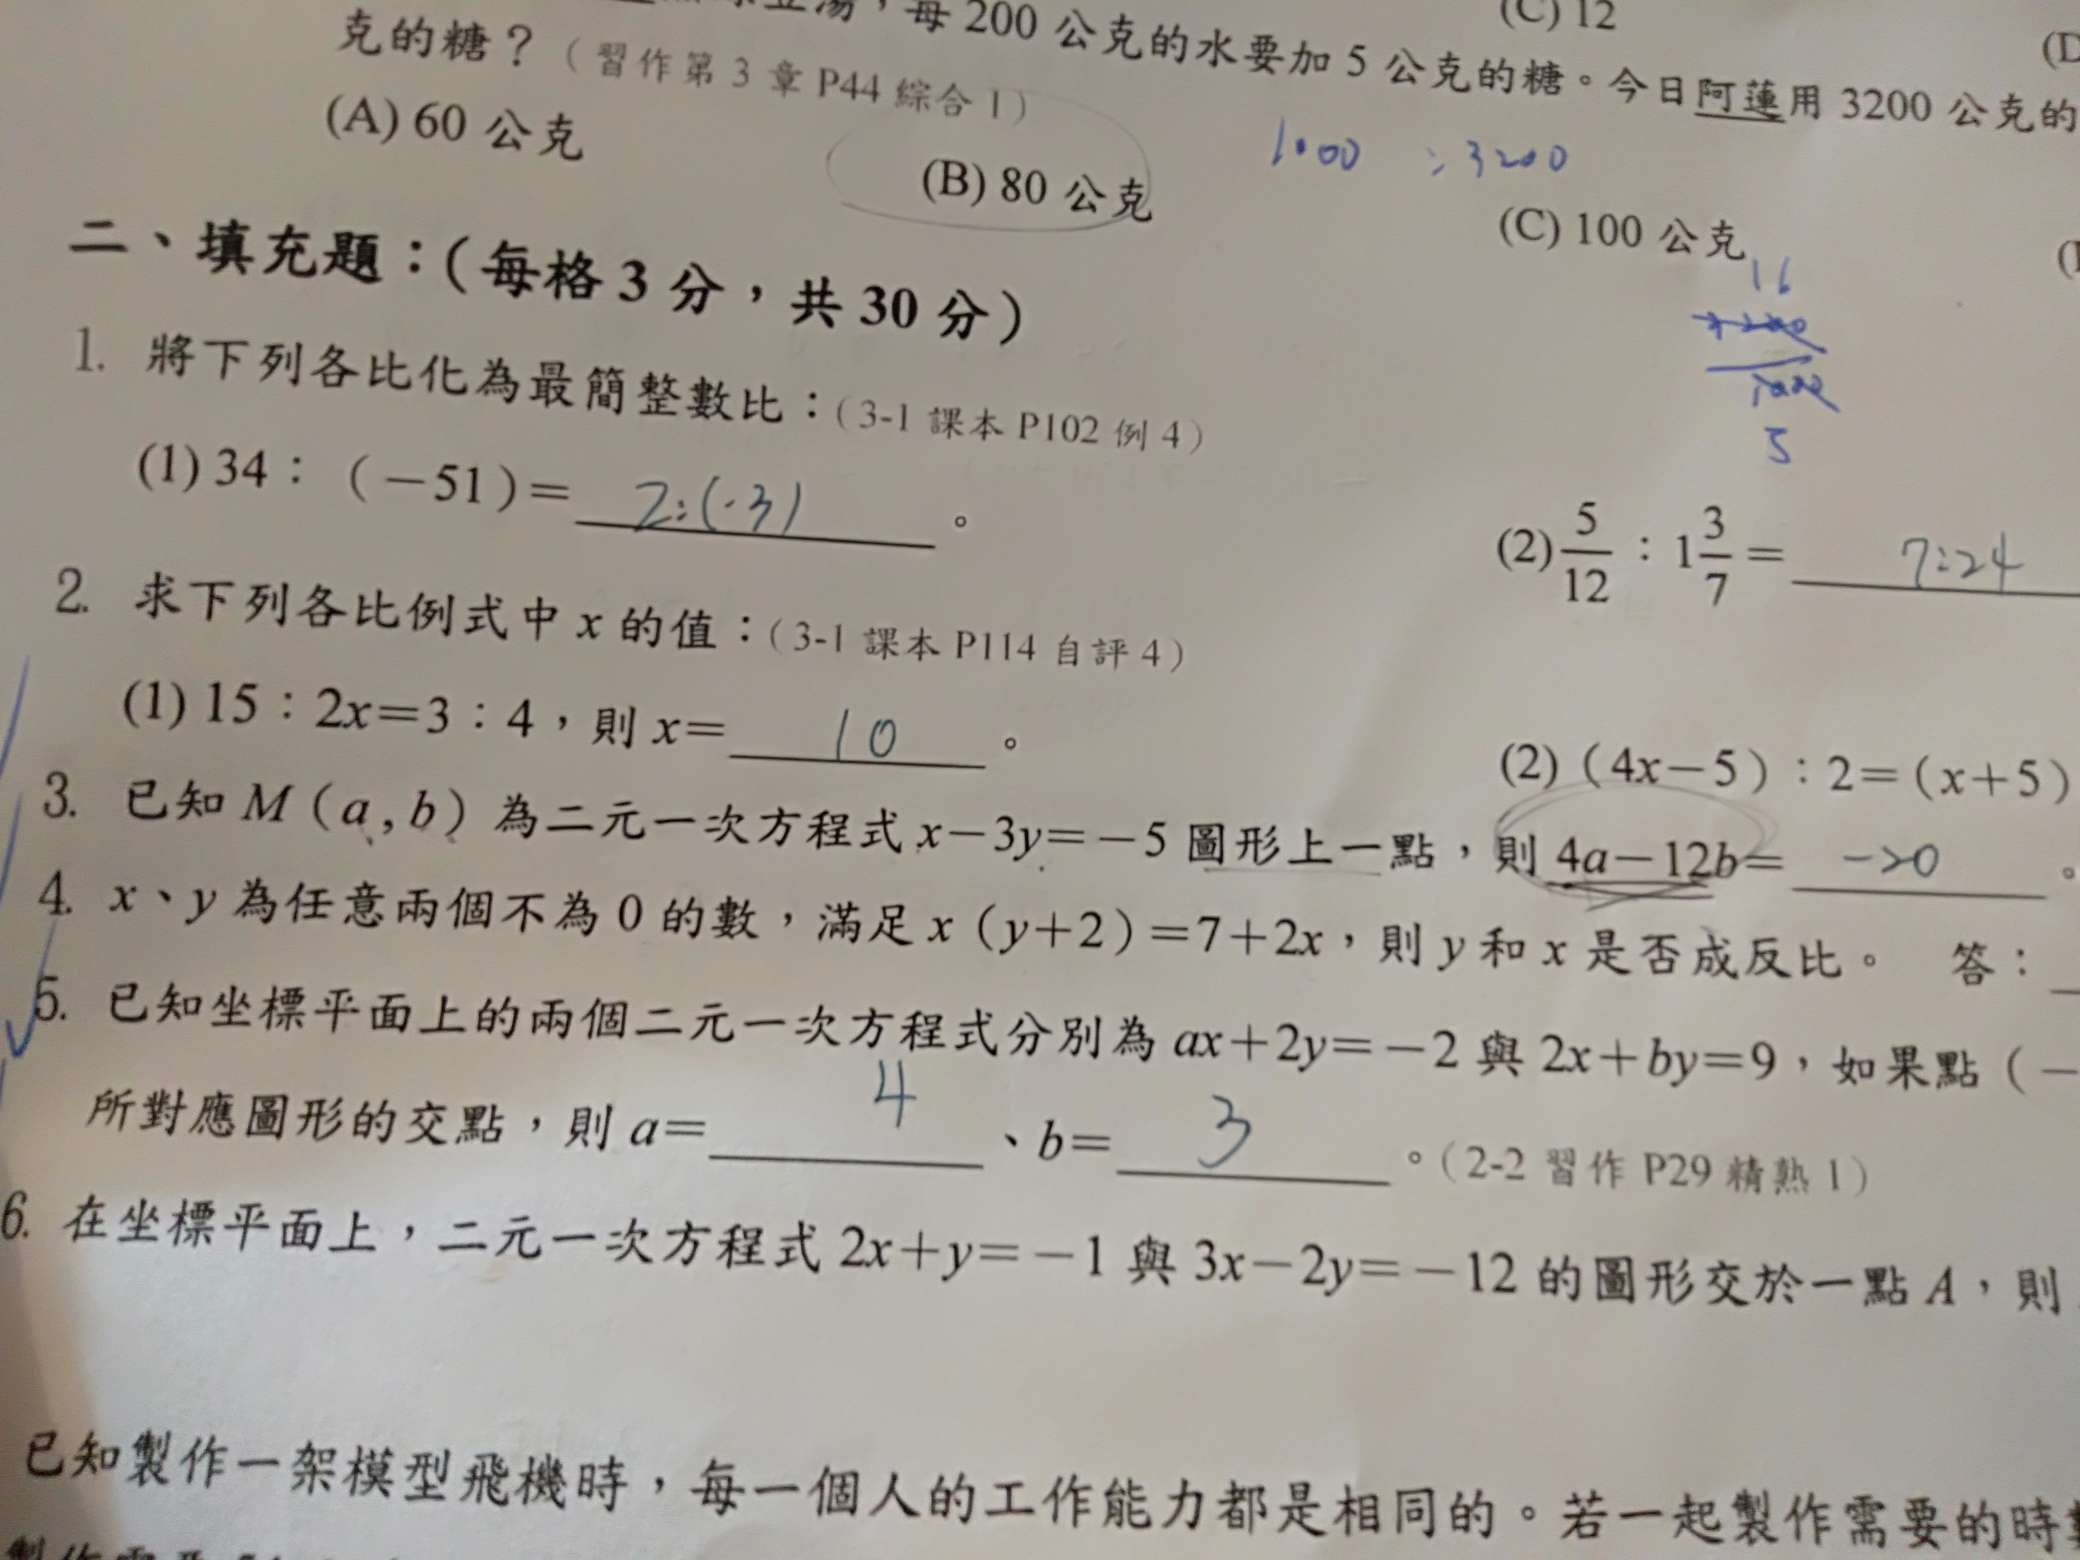 綠豆湯，每 200 公克的水要加 5 公克的糖。今日阿蓮用 3200 公克的
(C) 12
(D
克的糖？（習作第 3 章 P44 綜合 1）
1000 : 3200
(A) 60 公克
(B) 80 公克
(C) 100 公克
16
3200
1000
5
二、填充題：（每格 3 分，共 30 分）
1. 將下列各比化為最簡整數比：（3-1 課本 P102 例 4）
(1) 34：（－51）＝ 2:(-3) 。
(2) 5/12 ： 1 3/7 ＝ 7:24
2. 求下列各比例式中 x 的值：（3-1 課本 P114 自評 4）
(1) 15：2x＝3：4，則 x＝ 10 。
(2)（4x－5）：2＝（x＋5）
3. 已知 M（a , b）為二元一次方程式 x－3y＝－5 圖形上一點，則 4a－12b＝ -20 。
4. x、y 為任意兩個不為 0 的數，滿足 x（y＋2）＝7＋2x，則 y 和 x 是否成反比。 答：
5. 已知坐標平面上的兩個二元一次方程式分別為 ax＋2y＝－2 與 2x＋by＝9，如果點（－
所對應圖形的交點，則 a＝ 4 、b＝ 3 。（2-2 習作 P29 精熟 1）
6. 在坐標平面上，二元一次方程式 2x＋y＝－1 與 3x－2y＝－12 的圖形交於一點 A，則
已知製作一架模型飛機時，每一個人的工作能力都是相同的。若一起製作需要的時